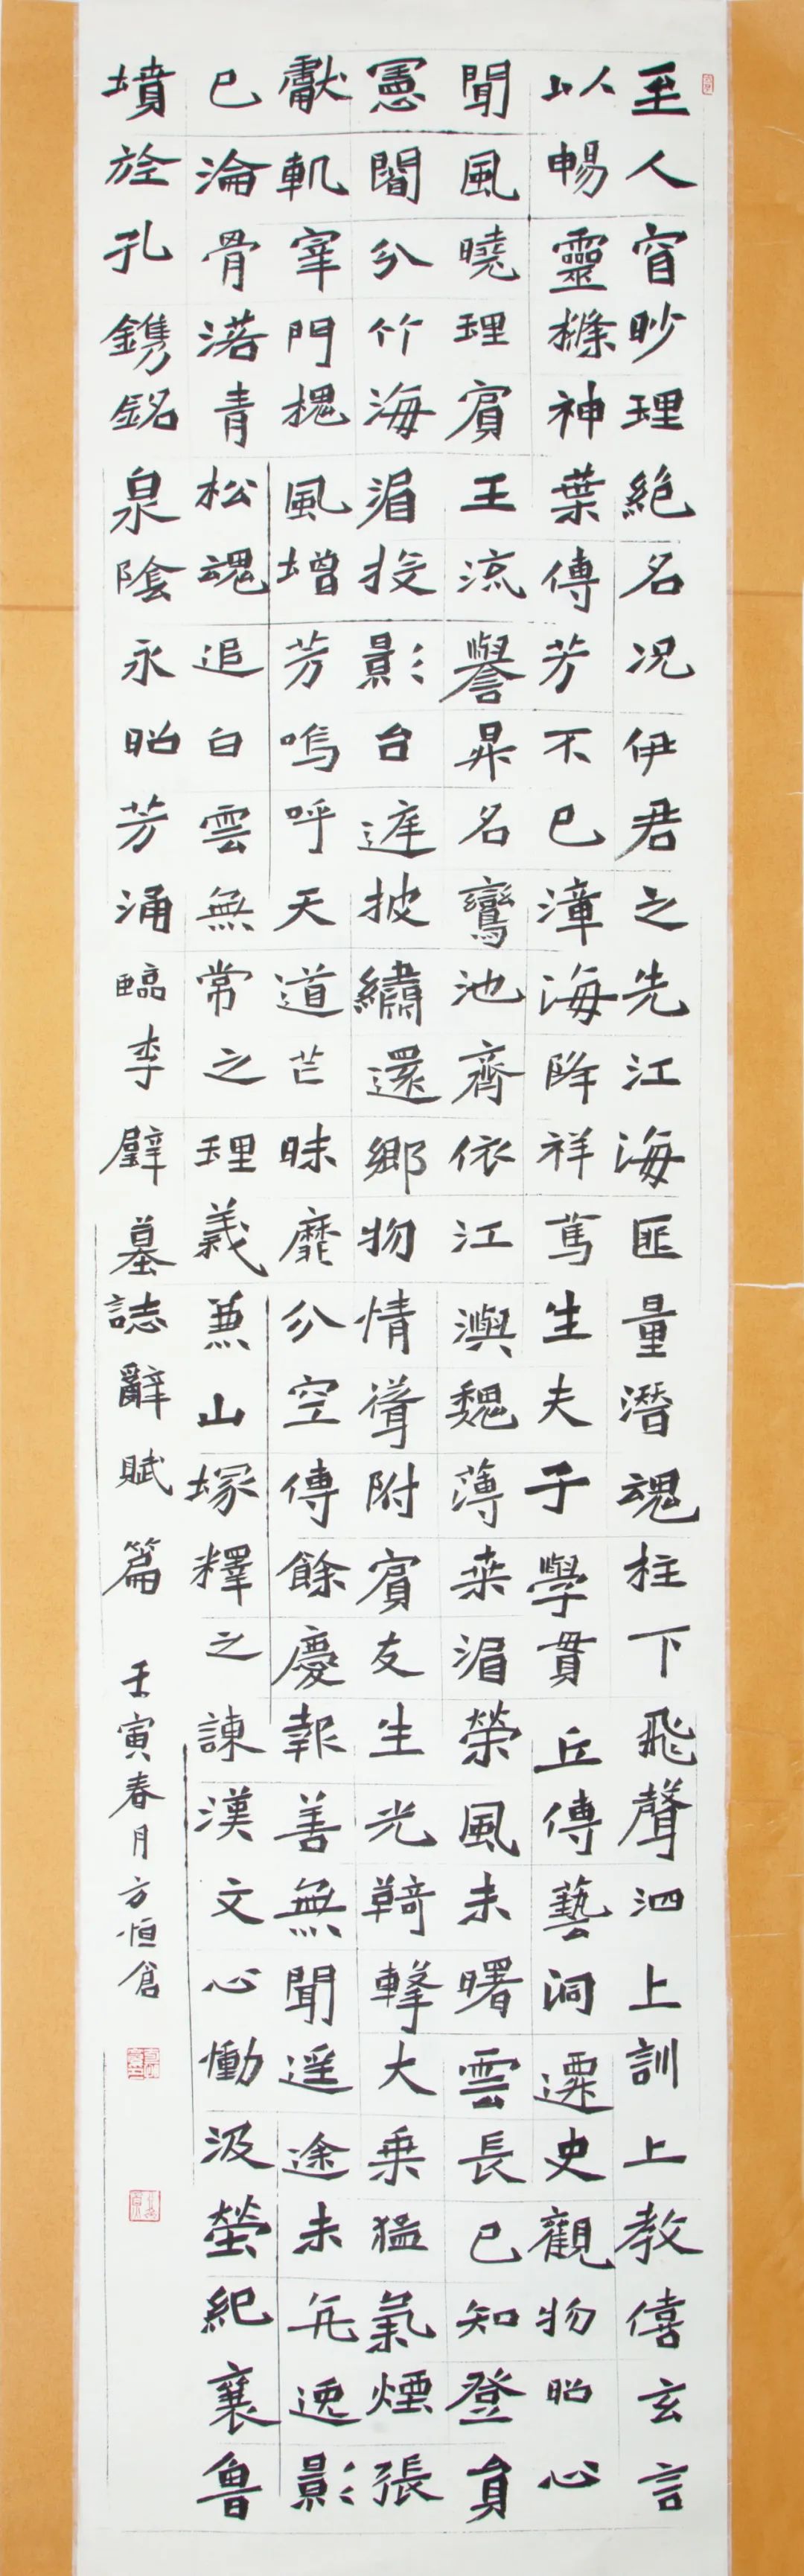 至人窅眇理絶名况伊君之先江海匪量潛魂柱下飛聲泗上訓上教僖玄言
以暢靈檰神葉傳芳不已漳海降祥篤生夫子學貫丘傳藝洞遷史觀物昭心
聞風曉理賓王流譽昇名鸞池齊依江澳魏薄桒湄榮風未曙雲長已知登員
憲閣分竹海湄投影台遲披繡還鄉物情聳附賓友生光騎擊大乘猛氣煙張
獻軌宰門槐風增芳嗚呼天道芒昧靡分空傳餘慶報善無聞遥途未半逸影
已淪骨淹青松魂追白雲無常之理義兼山塚釋之諫漢文心慟汲塋紀襄魯
墳旌孔鐫銘泉陰永昭芳涌臨李璧墓誌辭賦篇 壬寅春月方恒倉